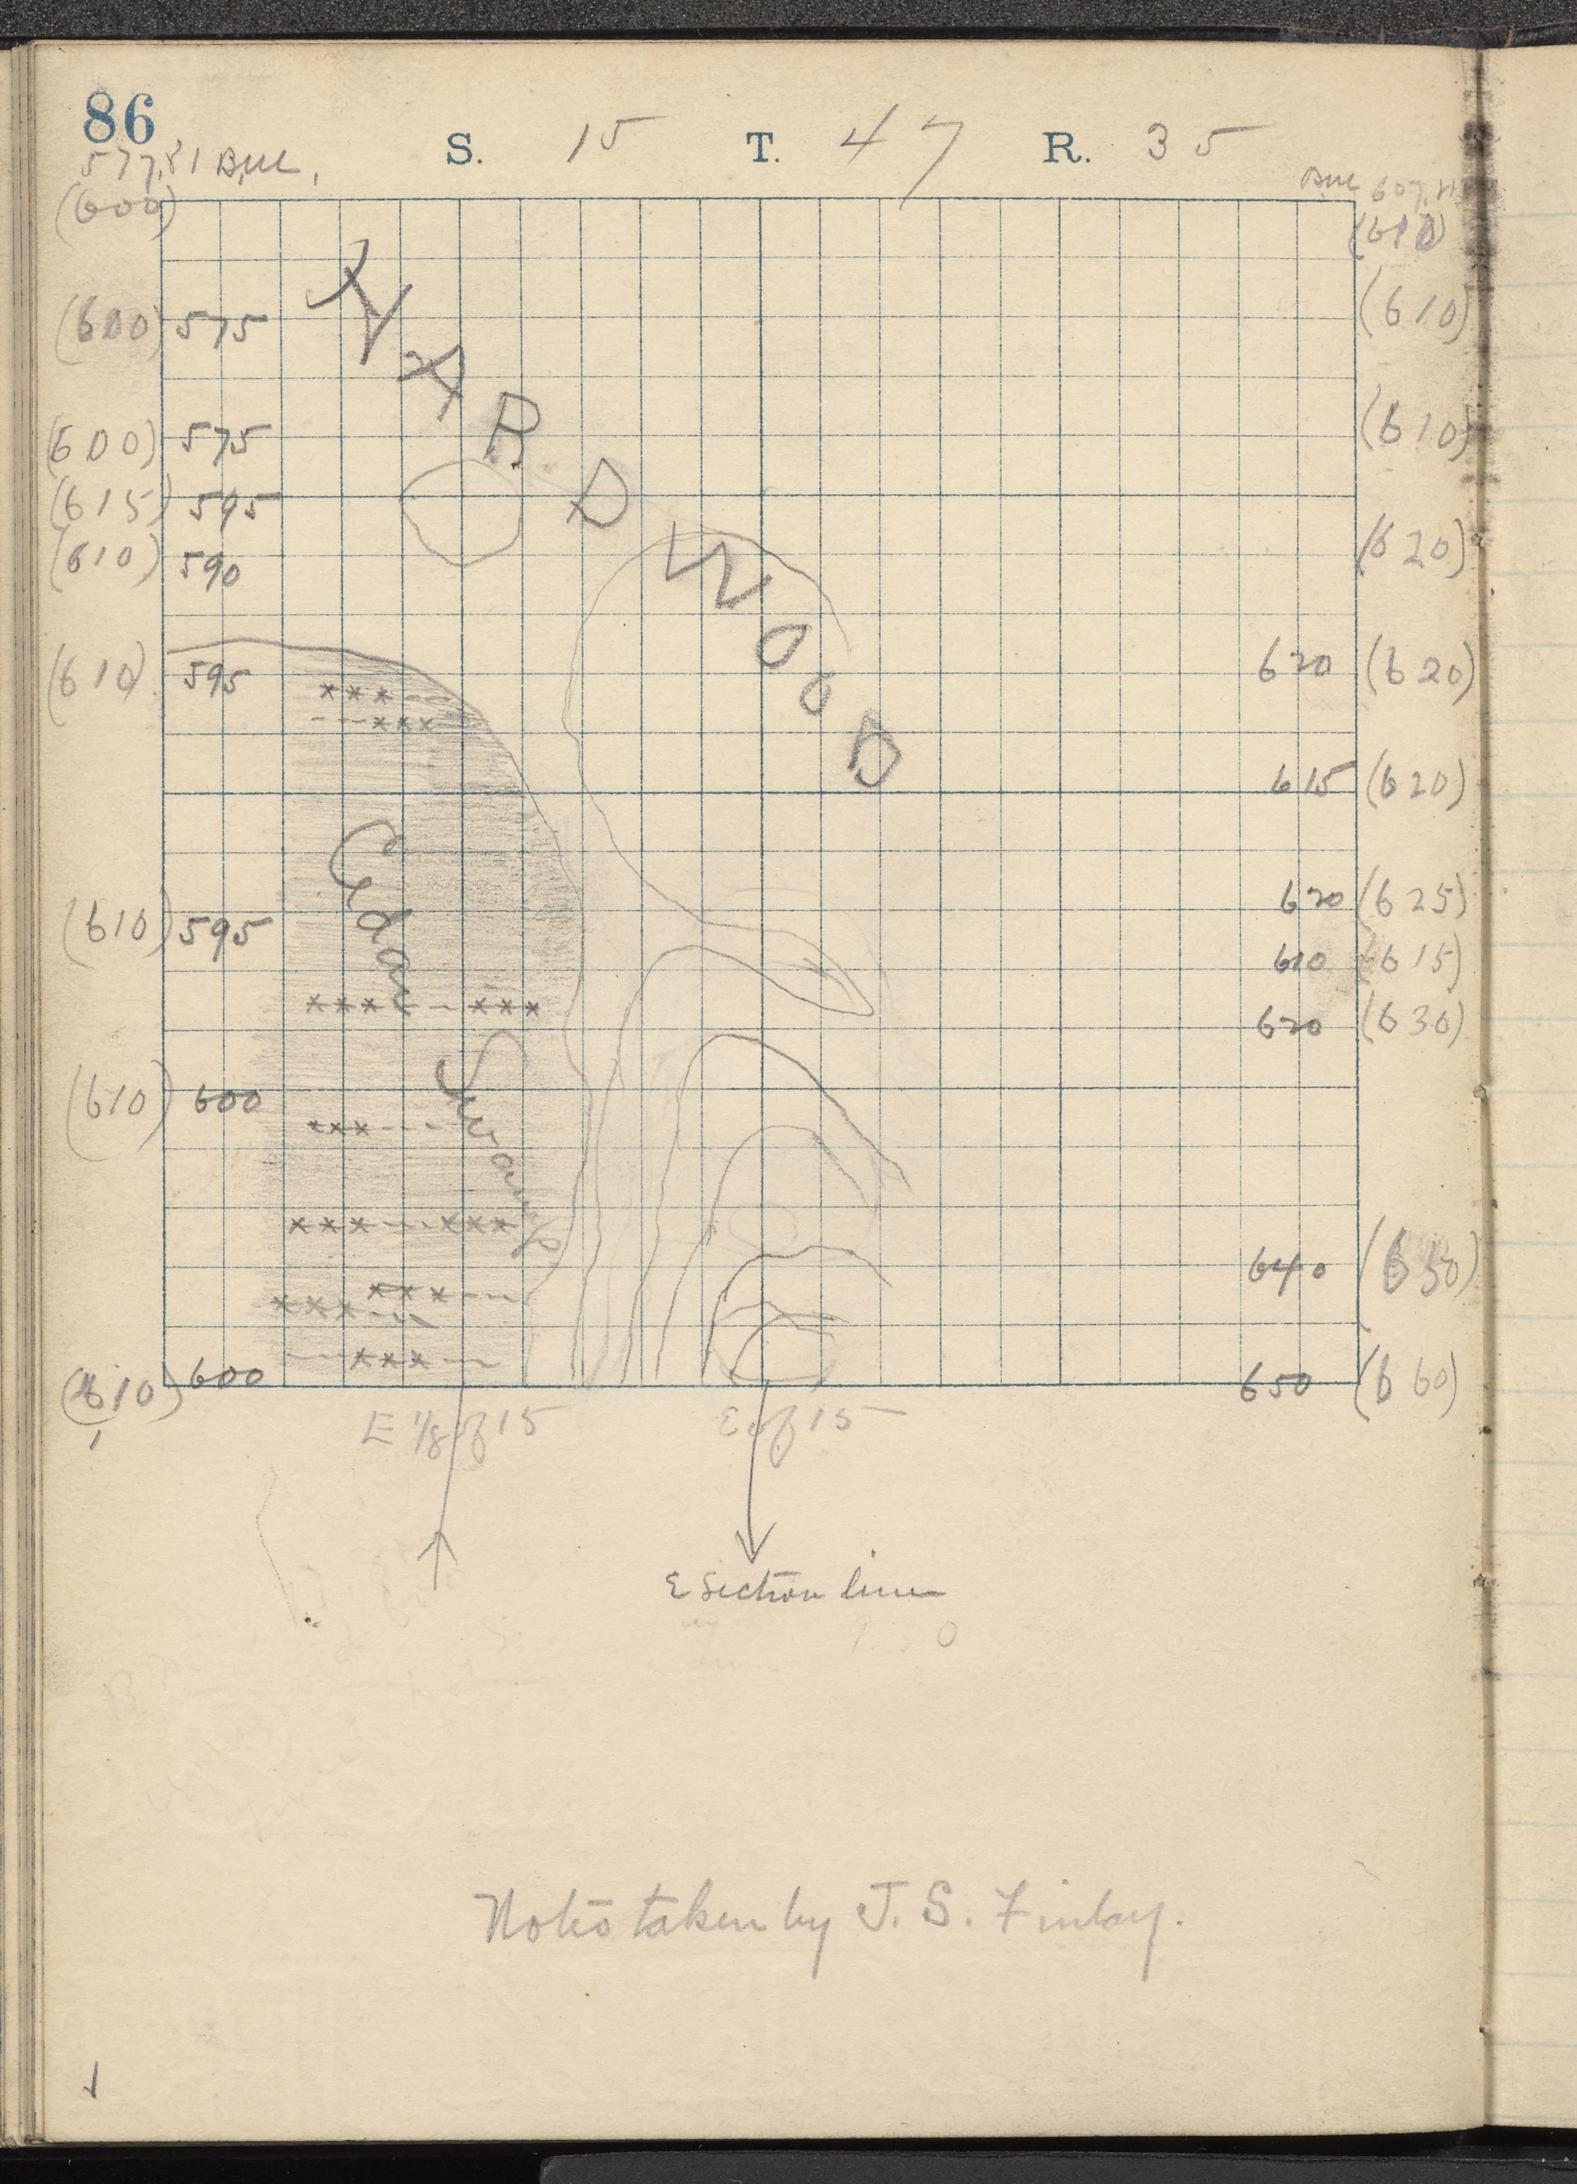 86
S. 15 T. 47 R. 35
577.81 B.M.
(600)
(610)
(600) 575
(610)
(600) 575
(610)
(615) 595
(610) 590
(620)
HARDWOOD
(610) 595
620 (620)
615 (620)
Cedar Swamp
620 (625)
(610) 595
610 (615)
620 (630)
(610) 600
640
(610) 600
650 (660)
E 1/8 of 15
E of 15
E Section line
Notes taken by J. S. Finlay.